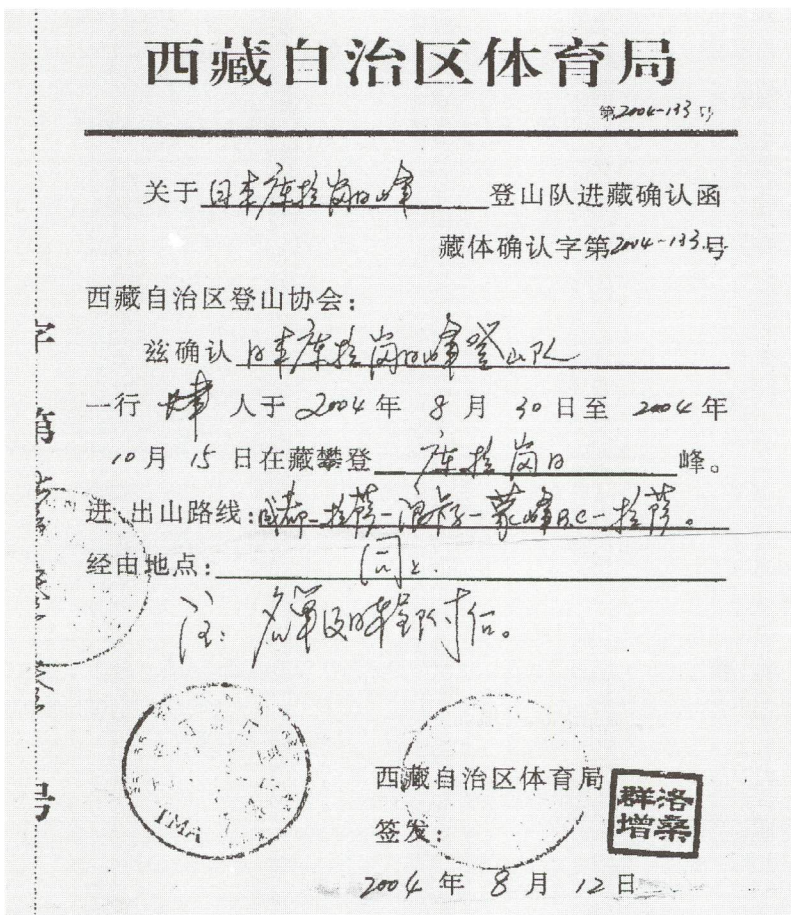 西藏自治区体育局
第2004-133号
关于日本库拉岗日峰登山队进藏确认函
藏体确认字第2004-133号
西藏自治区登山协会:
兹确认日本库拉岗日峰登山队
一行 肆 人于2004年 8月 30日至 2004年
10月 15日在藏攀登 库拉岗日 峰。
进、出山路线:成都-拉萨-浪卡子-蒙峰BC-拉萨。
经由地点: 同上.
注: 名单及日程附后。
TMA
西藏自治区体育局
签发:
群增 洛桑
2004年 8月 12日
字
第
号